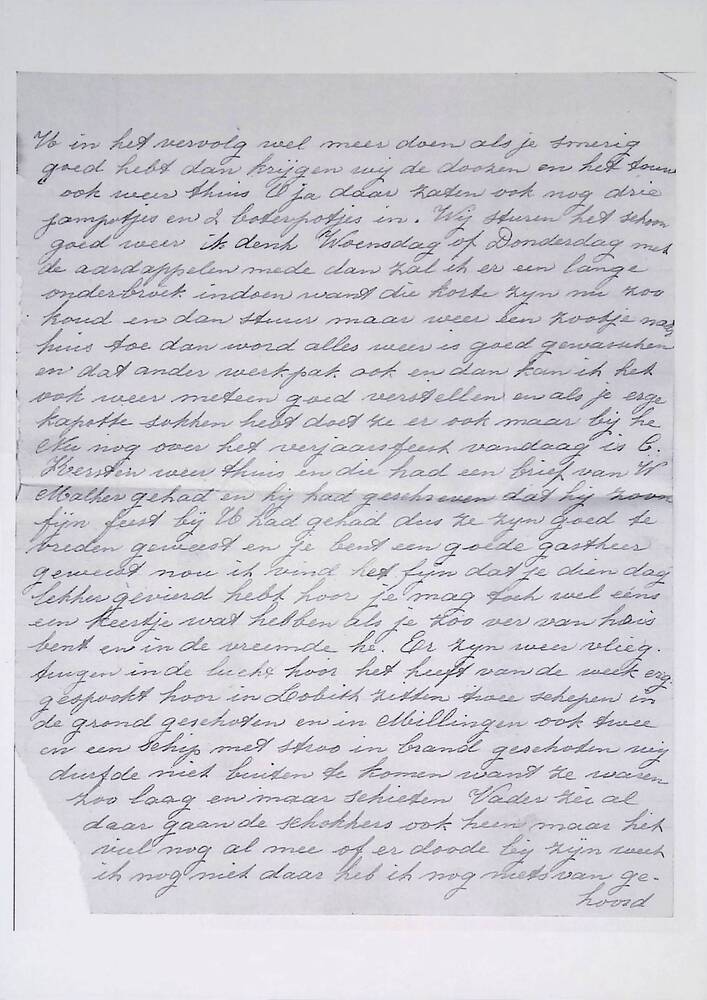 U in het vervolg wel meer doen als je smerig
goed hebt dan krijgen wij de doozen en het touw
ook weer thuis O ja daar zaten ook nog drie
jampotjes en 2 boterpotjes in. Wij sturen het schoon
goed weer ik denk Woensdag of Donderdag met
de aardappelen mede dan zal ik er een lange
onderbroek indoen want die korte zyn nu zoo
koud en dan stuur maar weer een zootje naar
huis toe dan word alles weer is goed gewasschen
en dat ander werkpak ook en dan kan ik het
ook weer meteen goed verstellen en als je erge
kapotte sokken hebt doet ze er ook maar bij he
Nu nog over het verjaarsfeest vandaag is C.
Kersten weer thuis en die had een brief van W
Malker gehad en hij had geschreven dat hij zoon
fijn feest bij U had gehad dus ze zyn goed te
vreden geweest en je bent een goede gastheer
geweest nou ik vind het fijn dat je dien dag
lekker gevierd hebt hoor je mag toch wel eens
een keertje wat hebben als je zoo ver van huis
bent en in de vreemde he. Er zyn weer vlieg-
tuigen in de lucht hoor het heeft van de week erg
gespookt hoor in Lobith zitten twee schepen in
de grond geschoten en in Millingen ook twee
en een schip met stroo in brand geschoten wij
durfde niet buiten te komen want ze waren
zoo laag en maar schieten Vader zei al
daar gaan de schokkers ook heen maar het
viel nog al mee of er doode bij zijn weet
ik nog niet daar heb ik nog niets van ge-
hoord